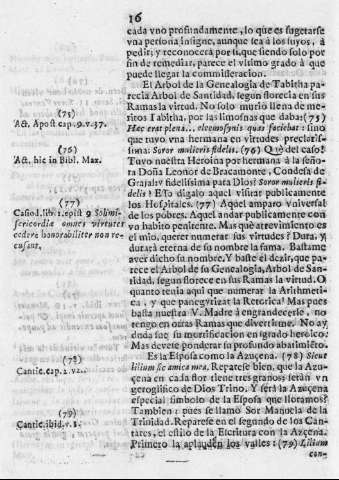 16
cada vno profundamente, lo que es sugetarse
vna persona insigne, aunque sea à los suyos, à
pedir; y reconocerà por sì, que siendo solo por
fin de remediar, parece el vltimo grado à que
puede llegar la commiseracion.
El Arbol de la Genealogìa de Tabitha pa-
recia Arbol de Santidad, segun florecia en sus
Ramas la virtud. No solo muriò llena de me-
ritos Tabitha, por las limosnas que daba: (75)
Hæc erat plena... eleemosynis quas faciebat: sino
que tuvo vna hermana en virtudes preclaris-
sima: Soror mulieris fidelis. (76) Què del caso!
Tuvo nuestra Heroina por hermana à la seño-
ra Doña Leonor de Bracamonte, Condesa de
Grajal; y fidelissima para Dios: Soror mulieris fi-
delis? Esto digalo aquel visitar publicamente
los Hospitales. (77) Aquel amparo vniversal
de los pobres. Aquel andar publicamente con
vn habito penitente. Mas què atrevimiento es
el mio, querer numerar sus virtudes? Dura, y
durarà eterna de su nombre la fama. Bastame
aver dicho su nombre. Y baste el decir, que pa-
rece el Arbol de su Genealogìa, Arbol de San-
tidad, segun florece en sus Ramas la virtud. O
quanto tenia aqui que numerar la Arithmeti-
ca, y que panegyrizar la Retorica! Mas pues
basta nuestra V. Madre à engrandecerse, no
tengo en otras Ramas que divertirme. No ay
duda fue su mortificacion en igrado heroico:
Mas debete ponderar su profundo abatimiẽto.
Es la Esposa como la Azuçena. (78) Sicut
lilium sic amica mea. Reparese bien, que la Azu-
çena en cada flor tiene tres granos; serán vn
geroglifico de Dios Trino. Y serà la Azuçena
especial simbolo de la Esposa que lloramos?
Tambien: pues se llamò Sor Manuela de la
Trinidad. Reparese en el segundo de los Can-
tares, el estilo de la Escritura con la Azçena.
Primero la aplauden los valles: (79) Lilium
con-
(75)
Act. Apost cap. 9. v. 37.
(76)
Act. hic in Bibl. Max.
(77)
Casiod. lib. 1. epist 9 Solimi-
sericordia omnes virtutes
cedere honorabiliter non re-
cusant.
(78)
Cantic. cap. 2. v2.
(79)
Cantic. ibid. v. 1.